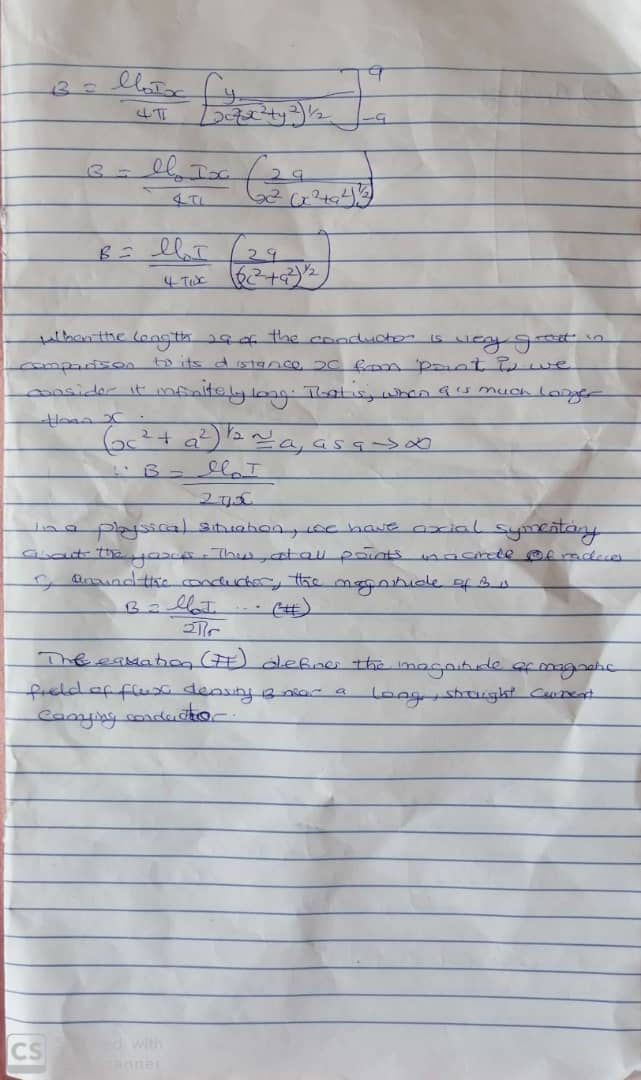 B = μ₀Ix / 4π [ y / x²(x²+y²)^1/2 ]^a_-a
B = μ₀Ix / 4π ( 2a / x²(x²+a²)^1/2 )
B = μ₀I / 4πx ( 2a / (x²+a²)^1/2 )
When the length 2a of the conductor is very great in
comparison to its distance x from point P, we
consider it infinitely long. That is, when a is much larger
than x.
(x² + a²)^1/2 ≅ a, as a → ∞
∴ B = μ₀I / 2πx
In a physical situation, we have axial symentary
about the y axis. Thus, at all points in a circle of radius
r, around the conductor, the magnitude of B is
B = μ₀I / 2πr ... (#)
The equation (#) defines the magnitude of magnetic
field of flux density B near a long, straight current
carrying conductor.
CS Scanned with
CamScanner